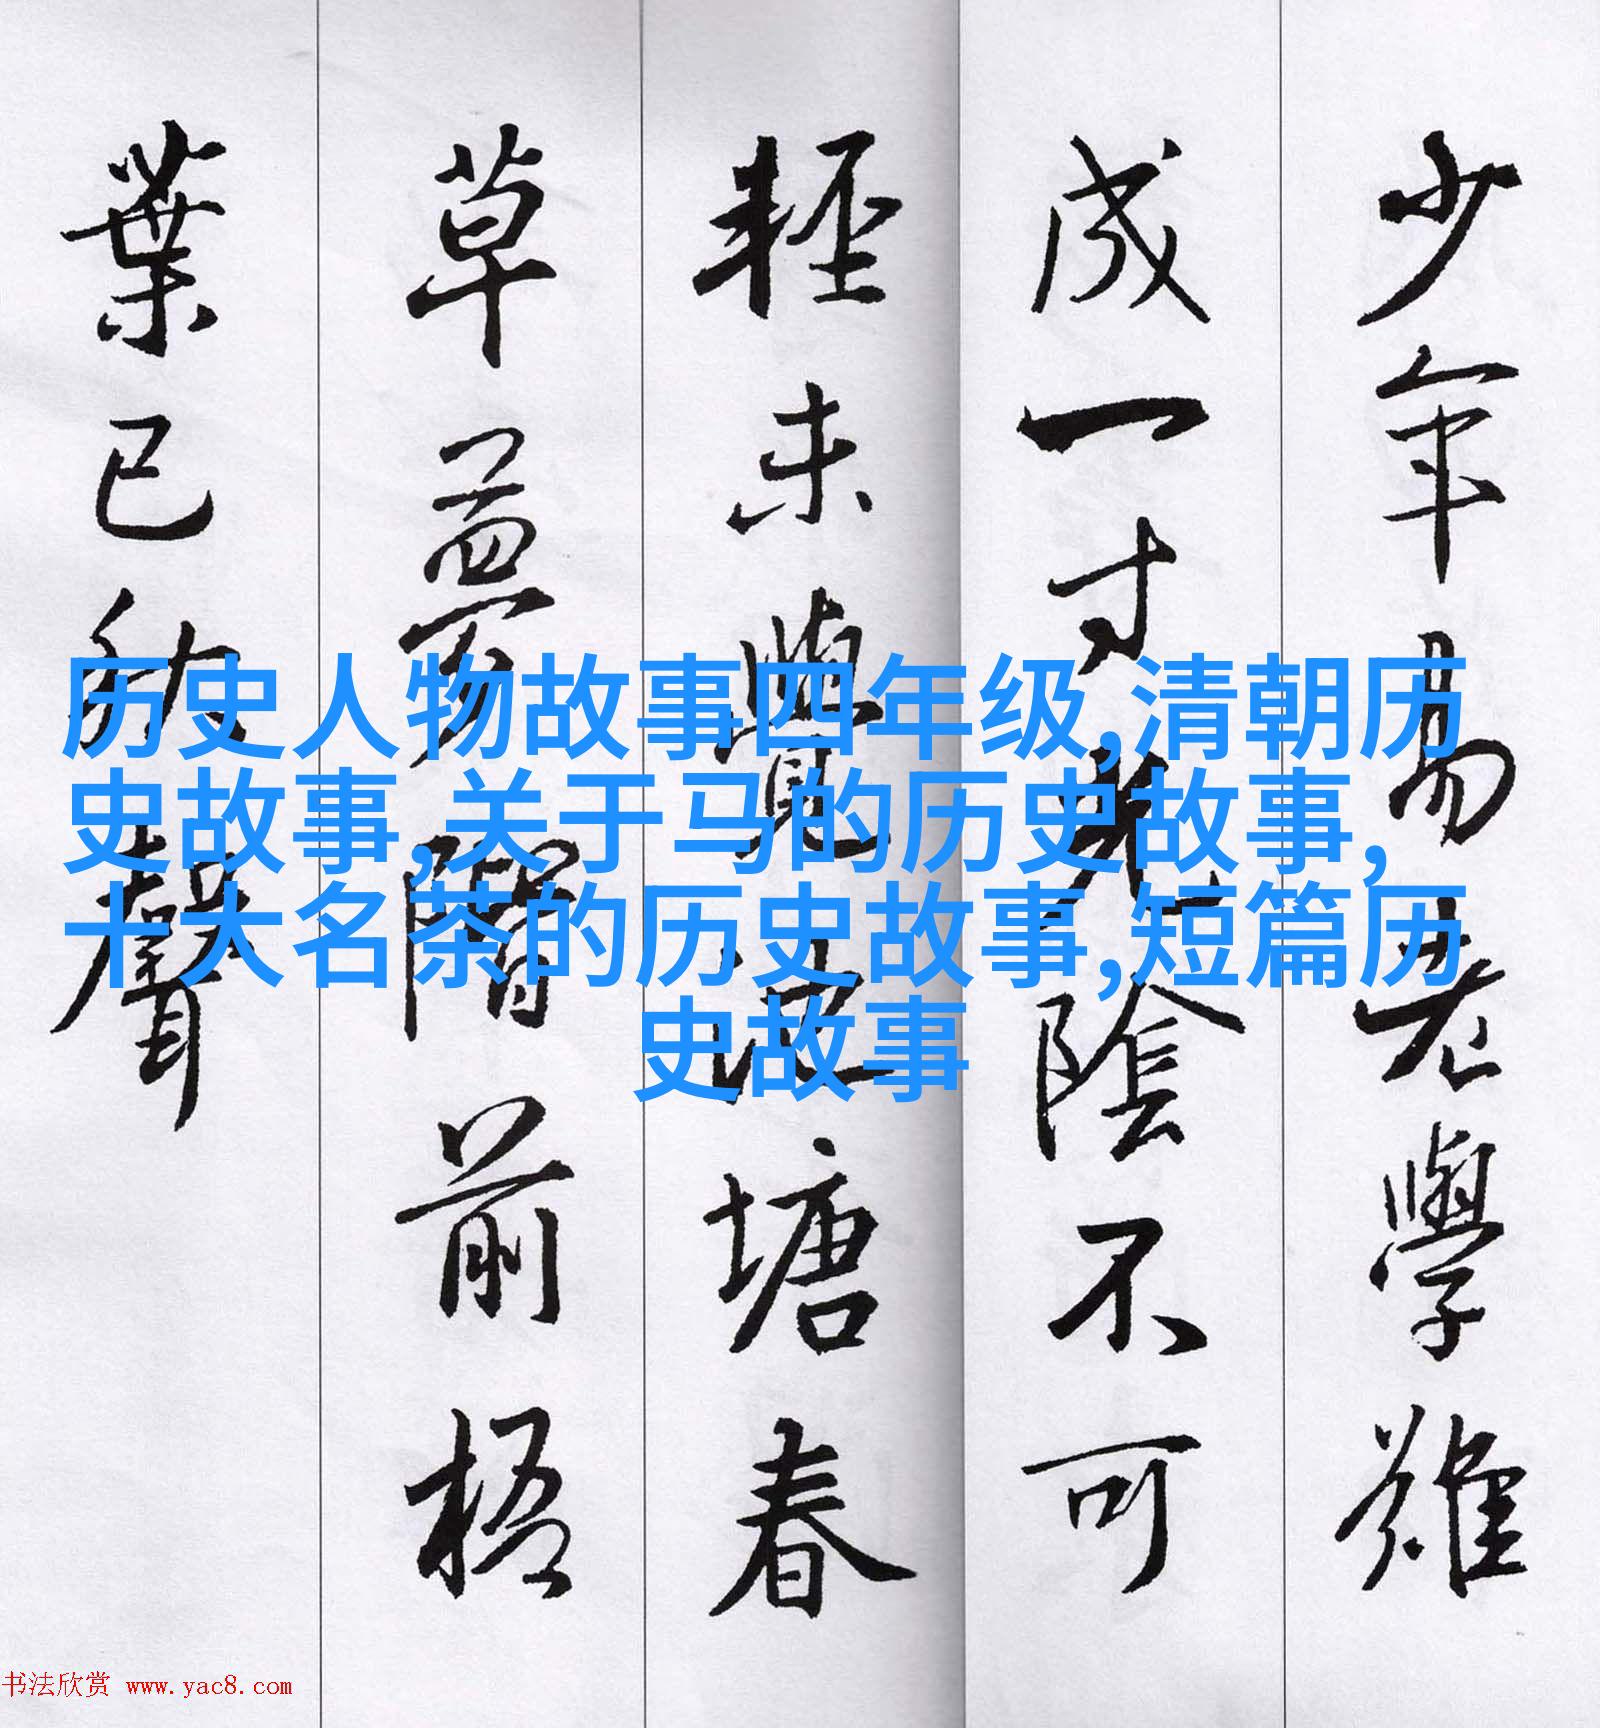 少年易老學難
成一寸光陰不可
輕未覺池塘春
草夢階前梧
葉已秋聲
历史人物故事四年级,清朝历
史故事,关于马的历史故事,
十大名茶的历史故事,短篇历
史故事
书法欣赏 www.yac8.com